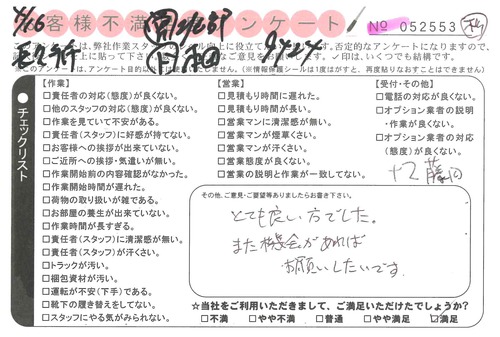 4/16
お客様不満 アンケート
No 052553
アンケートは、弊社作業スタッフの
否定的なアンケートになりますので、
ご意見をお聞かせ下さい。✓印は、いくつでも結構です。
※このアンケートは、アンケート目的以外
しません。(※情報保護シールは1度がはすと、再度貼りなおすことはできません)
●チェックリスト
【作業】
□責任者の対応(態度)が良くない。
□他のスタッフの対応(態度)が良くない。
□作業を見ていて不安がある。
□責任者(スタッフ)に好感が持てない。
□お客様への挨拶が出来ていない。
□ご近所への挨拶・気遣いが無い。
□作業開始前の内容確認がなかった。
□作業開始時間が遅れた。
□荷物の取り扱いが雑である。
□お部屋の養生が出来ていない。
□作業時間が長すぎる。
□責任者(スタッフ)に清潔感が無い。
□責任者(スタッフ)が汗くさい。
□トラックが汚い。
□梱包資材が汚い。
□運転が不安(下手)である。
□靴下の履き替えをしてない。
□スタッフにやる気がみられない。
【営業】
□見積もり時間に遅れた。
□見積もり時間が長い。
□営業マンに清潔感が無い。
□営業マンが煙草くさい。
□営業マンが汗くさい。
□営業態度が良くない。
□営業の説明と作業が一致してない。
【受付・その他】
□電話の対応が良くない。
□オプション業者の説明・作業が良くない。
□オプション業者の対応(態度)が良くない。
その他、ご意見・ご要望等ありましたらお書き下さい。
とても良い方でした。
また機会があれば
お願いしたいです。
☆当社をご利用いただきまして、ご満足いただけたでしょうか?
□不満 □やや不満 □普通 □やや満足 □満足